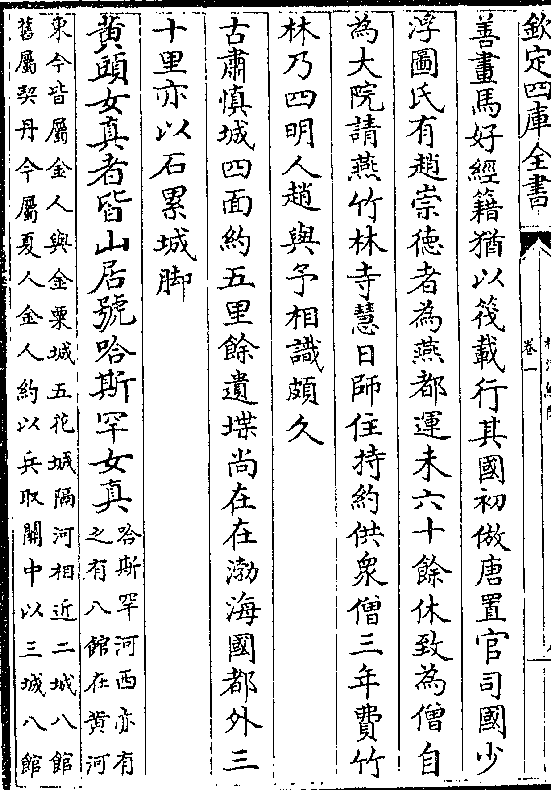 欽定四庫全書
卷一
善畫馬好經籍猶以筏載行其國初倣唐置官司國少
浮圖氏有趙崇德者為燕都運未六十餘休致為僧自
為大院請燕竹林寺慧日師住持約供衆僧三年費竹
林乃四明人趙與予相識頗久
古肅慎城四面約五里餘遺堞尚在在渤海國都外三
十里亦以石累城脚
黄頭女真者皆山居號哈斯罕女真
哈斯罕河西亦有
之有八館在黄河
東今皆屬金人與金粟城五花城隔河相近二城八館
舊屬契丹今屬夏人金人約以兵取關中以三城八館